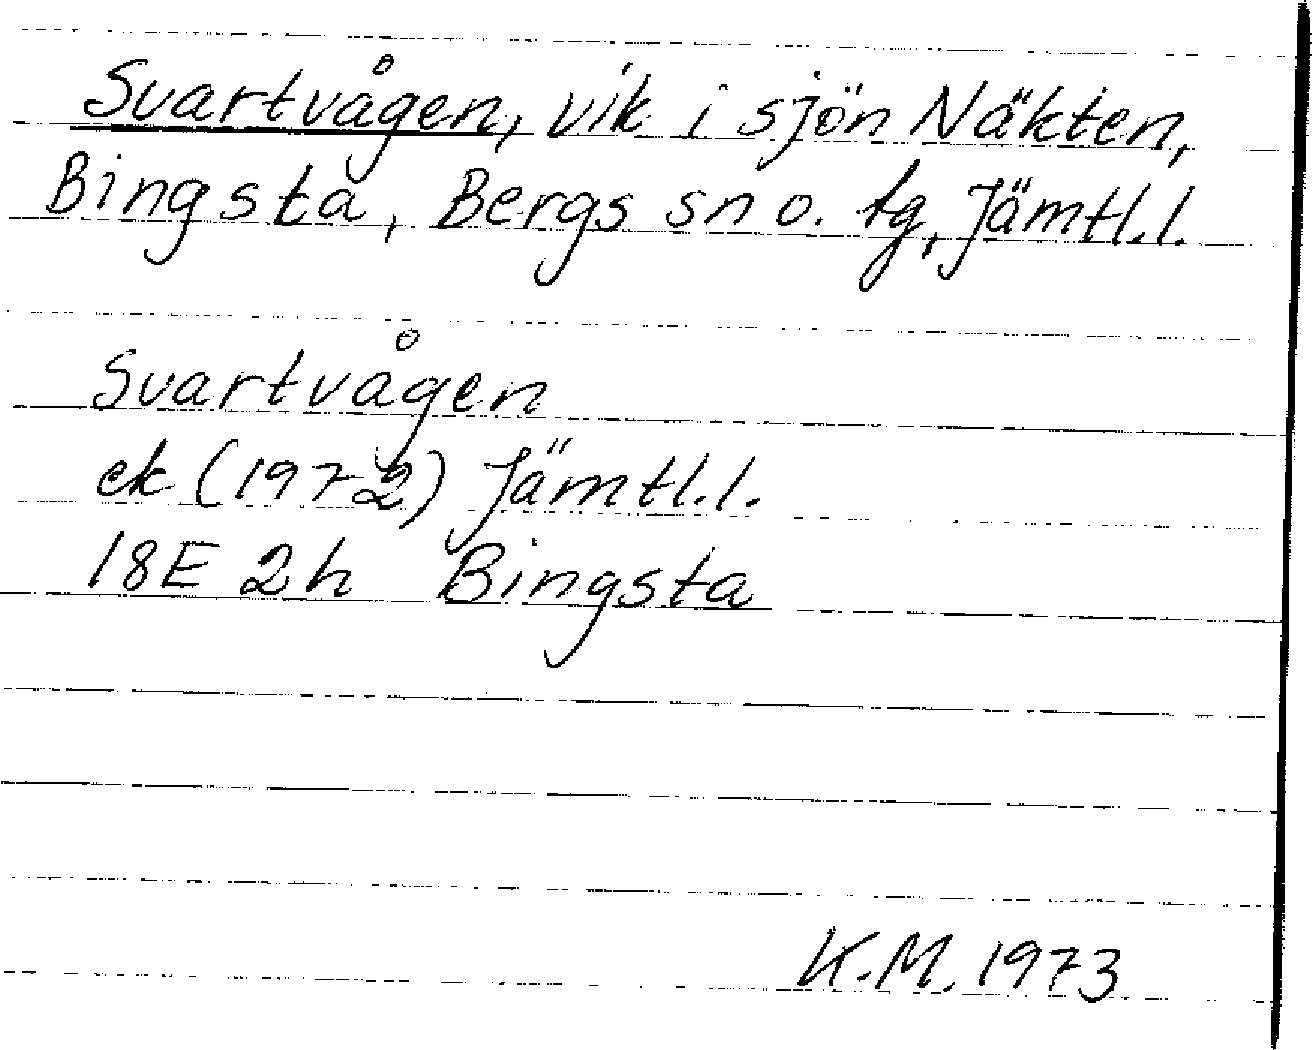 Svartvågen, vik i sjön Näkten,
Bingsta, Bergs sn o. tg, Jämtl.l.
Svartvågen
ek (1972) Jämtl.l.
18E 2h Bingsta
K.M. 1973